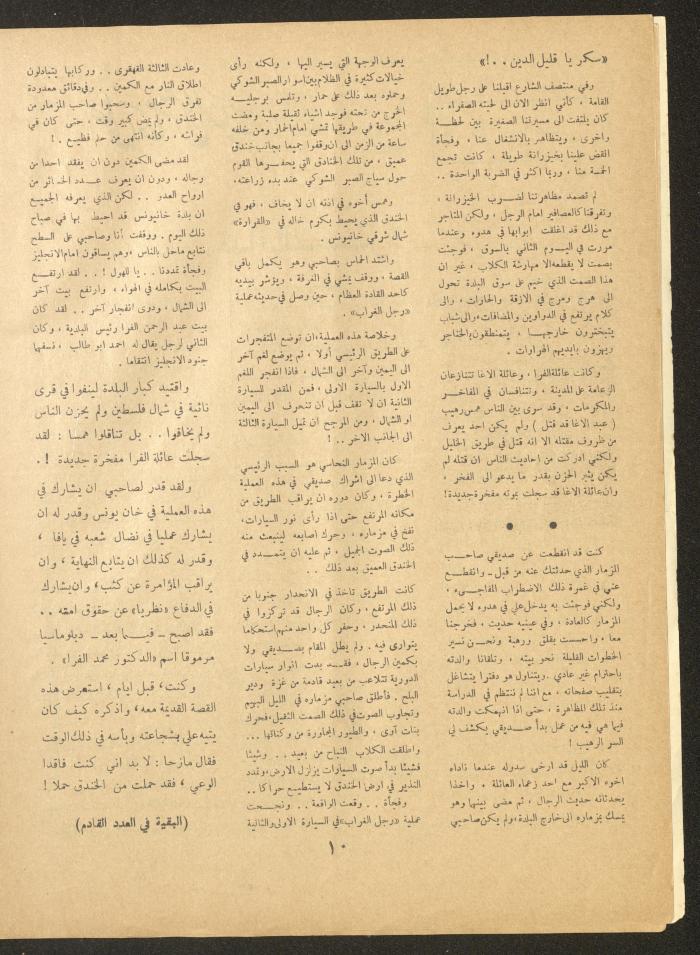 «سكر يا قليل الدين . . !»
وفي منتصف الشارع اقبلنا على رجل طويل
القامة ، كأني انظر الان الى لحيته الصفراء . .
كان يلتفت الى مسيرتنا الصغيرة بين لحظة
واخرى ، ويتظاهر بالانشغال عنا ، وفجأة
انقض علينا بخيزرانة طويلة ، كانت تجمع
الخمسة منا ، وربما اكثر في الضربة الواحدة . .
لم تصمد مظاهرتنا لضرب الخيزرانة ،
وتفرقنا كالعصافير امام الرجل ، ولكن المتاجر
مع ذلك قد اغلقت ابوابها في هدوء وعندما
مررت في اليوم الثاني بالسوق ، فوجئت
بصمت لا يقطعه الا مهارشة الكلاب ، غير ان
هذا الصمت الذي خيم على سوق البلدة تحول
الى هرج ومرج في الازقة والحارات ، والى
كلام يرتفع في الدواوين والمضافات ، والى شباب
يتبخترون خارجها ، يتمنطقون بالخناجر
ويهزون بايديهم الهراوات .
وكانت عائلة الفرا ، وعائلة الاغا تتنازعان
الزعامة على المدينة ، وتتنافسان في المفاخر
والمكرمات ، وقد سرى بين الناس همس رهيب
( عبد الاغا قد قتل ) ولم يكن احد يعرف
من ظروف مقتله الا انه قتل في طريق الخليل
ولكنني ادركت من احاديث الناس ان قتله لم
يكن يثير الحزن بقدر ما يدعو الى الفخر ،
وان عائلة الاغا قد سجلت بموته مفخرة جديدة !
● ●
كنت قد انقطعت عن صديقي صاحب
المزمار الذي حدثتك عنه من قبل ـ وانقطع
عني في غمرة ذلك الاضطراب المفاجيء ،
ولكنني فوجئت به يدخل علي في هدوء لا يحمل
المزمار كالعادة ، وفي عينيه حديث ، فخرجنا
معا ، واحسست بقلق ورهبة ونحن نسير
الخطوات القليلة نحو بيته ، وتلقانا والدته
باحترام غير عادي . ويتناول هو دفترا يتشاغل
بتقليب صفحاته ، مع اننا لم ننتظم في الدراسة
منذ تلك المظاهرة ، حتى اذا انهمكت والدته
فيما هي فيه من عمل بدأ صديقي يكشف لي
السر الرهيب !
كان الليل قد ارخى سدوله عندما ناداه
اخوه الاكبر مع احد زعماء العائلة ، واخذا
يحدثانه حديث الرجال ، ثم مضى بينهما وهو
يمسك بمزماره الى خارج البلدة ، ولم يكن صاحبي
يعرف الوجهة التي يسير اليها ، ولكنه رأى
خيالات كثيرة في الظلام بين اسوار الصبر الشوكي
وحملوه بعد ذلك على حمار ، وتلمس برجليه
الخرج من تحته فوجد اشياء ثقيلة صلبة ومضت
المجموعة في طريقها تمشي امام الحمار ومن خلفه
ساعة من الزمن الى ان وقفوا جميعا بجانب خندق
عميق ، من تلك الخنادق التي يحفرها القوم
حول سياج الصبر الشوكي عند بدء زراعته .
وهمس أخوه في اذنه ان لا يخاف ، فهو في
الخندق الذي يحيط بكرم خاله في «القرارة»
شمال شرقي خانيونس .
واشتد الحماس بصاحبي وهو يكمل باقي
القصة ، ووقف يمشي في الغرفة ، ويؤشر بيديه
كاحد القادة العظام ، حين وصل في حديثه عملية
«رجل الغراب» .
وخلاصة هذه العملية ، ان توضع المتفجرات
على الطريق الرئيسي أولا ، ثم يوضع لغم آخر
الى اليمين وآخر الى الشمال ، فاذا انفجر اللغم
الاول بالسيارة الاولى ، فمن المقدر للسيارة
الثانية ان لا تقف قبل ان تنحرف الى اليمين
او الشمال ، ومن المرجح ان تميل السيارة الثالثة
الى الجانب الاخر . . !
كان المزمار النحاسي هو السبب الرئيسي
الذي دعا الى اشراك صديقي في هذه العملية
الخطرة ، وكان دوره ان يراقب الطريق من
مكانه المرتفع حتى اذا رأى نور السيارات ،
نفخ في مزماره ، وحرك اصابعه لينبعث منه
ذلك الصوت الجميل ، ثم عليه ان يتمدد في
الخندق العميق بعد ذلك . .
كانت الطريق تأخذ في الانحدار جنوبا من
ذلك المرتفع ، وكان الرجال قد تركزوا في
ذلك المنحدر ، وحفر كل واحد منهم استحكاما
يتوارى فيه . ولم يطل المقام بصديقي ولا
بكمين الرجال ، فقد بدت انوار سيارات
الدورية تتلاعب من بعيد قادمة من غزة ودير
البلح . فأطلق صاحبي مزماره في الليل البهيم
وتجاوب الصوت في ذلك الصمت الثقيل ، فحرك
بنات آوى ، والطيور المجاورة من وكناتها . . .
واطلقت الكلاب النباح من بعيد . . وشيئا
فشيئا بدأ صوت السيارات يزلزل الارض ، وتمدد
النذير في ارض الخندق لا يستطيع حراكا . .
وفجأة . . وقعت الواقعة . . ونجحت
عملية «رجل الغراب» في السيارة الاولى والثانية
وعادت الثالثة القهقرى . . وركابها يتبادلون
اطلاق النار مع الكمين . . وفي دقائق معدودة
تفرق الرجال ، وسحبوا صاحب المزمار من
الخندق ، ولم يمض كبير وقت ، حتى كان في
فراشه ، وكأنه انتهى من حلم فظيع . !
لقد مضى الكمين دون ان يفقد احدا من
رجاله ، ودون ان يعرف عدد الخسائر من
ارواح العدو . . لكن الذي يعرفه الجميع
ان بلدة خانيونس قد احيط بها في صباح
ذلك اليوم . ووقفت أنا وصاحبي على السطح
نتابع ما حل بالناس ، وهم يساقون امام الانجليز
وفجأة تمددنا . . يا للهول ! . . لقد ارتفع
البيت بكامله في الهواء ، وارتفع بيت آخر
الى الشمال ، ودوى انفجار آخر . . لقد كان
بيت عبد الرحمن الفرا رئيس البلدية ، وكان
الثاني لرجل يقال له احمد ابو طالب ، نسفهما
جنود الانجليز انتقاما .
واقتيد كبار البلدة لينفوا في قرى
نائية في شمال فلسطين ولم يحزن الناس
ولم يخافوا . . بل تناقلوا همسا : لقد
سجلت عائلة الفرا مفخرة جديدة ! .
ولقد قدر لصاحبي ان يشارك في
هذه العملية في خان يونس وقدر له ان
يشارك عمليا في نضال شعبه في يافا ،
وقدر له كذلك ان يتابع النهاية ، وان
يراقب المؤامرة عن كثب ، وان يشارك
في الدفاع «نظريا» عن حقوق امته . .
فقد اصبح ـ فيما بعد ـ دبلوماسيا
مرموقا اسم «الدكتور محمد الفرا» .
وكنت ، قبل ايام ، استعرض هذه
القصة القديمة معه ، واذكره كيف كان
يتيه علي بشجاعته وبأسه في ذلك الوقت
فقال مازحا : لا بد انني كنت فاقدا
الوعي ، فقد حملت من الخندق حملا !
(البقية في العدد القادم)
١٠